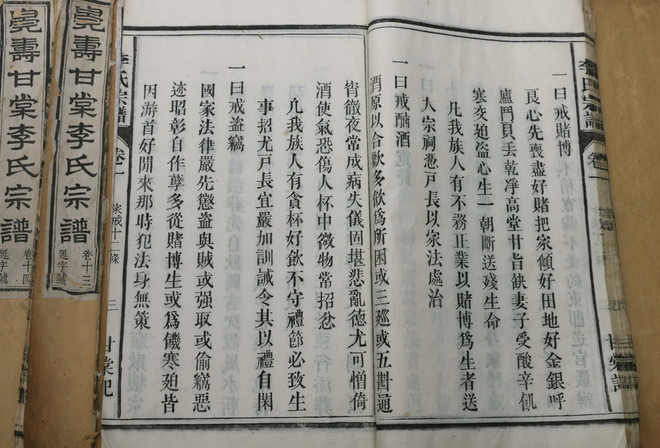 一曰戒賭博
良心先喪盡好賭把家傾好田地好金銀呼
盧鬥頁丟乾凈高堂甘旨缺妻子受酸辛飢
寒交廹盜心生一朝斷送殘生命
凡我族人有不務正業以賭博爲生者送
大宗祠憑戸長以家法處治
一曰戒酗酒
酒原以合歡多飲爲所困或三廵或五斟通
宵徹夜常成病失儀固堪悲亂德尤可憎倚
酒使氣恐傷人杯中微物常招忿
凡我族人有貪杯好飲不守禮節必致生
事招尤戸長宜嚴加訓誡令其以禮自閑
一曰戒盜竊
國家法律嚴先懲盜與賊或强取或偷竊惡
迹昭彰自作孽多從賭博生或爲饑寒廹皆
因游首好閒來那時犯法身無策
李氏宗譜
卷二
家戒十二條
三
甘棠記
壽甘棠李氏宗譜
卷十三
壽甘棠李氏宗譜
卷十四